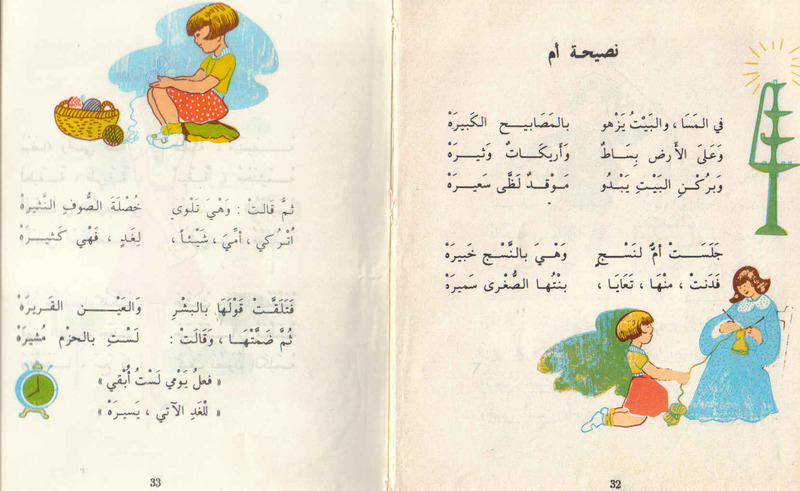 نصيحة أم
في المَسَا ، والبَيْتُ يَزْهو بالمَصَابيح الكَبيرَهْ
وَعَلَى الأَرض بِسَاطٌ وَأَريكَاتٌ وَثيرَهْ
وَبرُكْنِ البَيْتِ يَبْدُو مَوْقدٌ لَظًى سَعيرَهْ
جَلَسَتْ أمٌّ لنَسْجٍ وَهْيَ بالنَّسْج خَبيرَهْ
فَدَنَتْ ، منْهَا ، تَعَابَا ، بنْتُها الصُّغْرى سَميرَهْ
32
ثمَّ قَالتْ : وَهْيَ تَلْوي خُصْلَةَ الصُّوفِ النَّثيرَهْ
اُتْرُكي ، أمِّيَ ، شَيْئاً ، لِغَدٍ ، فَهْي كَثيرَهْ
فَتَلَقَّتْ قَوْلَهَا بالبشْرِ والعَيْنِ القَريرَهْ
ثُمَّ ضَمَّتْهَا ، وَقَالَتْ : لَسْتِ بالحزْم مُشيرَهْ
« فعلُ يَوْمي لَسْتُ أبْقي »
« للْغَدِ الآتي ، يَسيرَهْ »
33